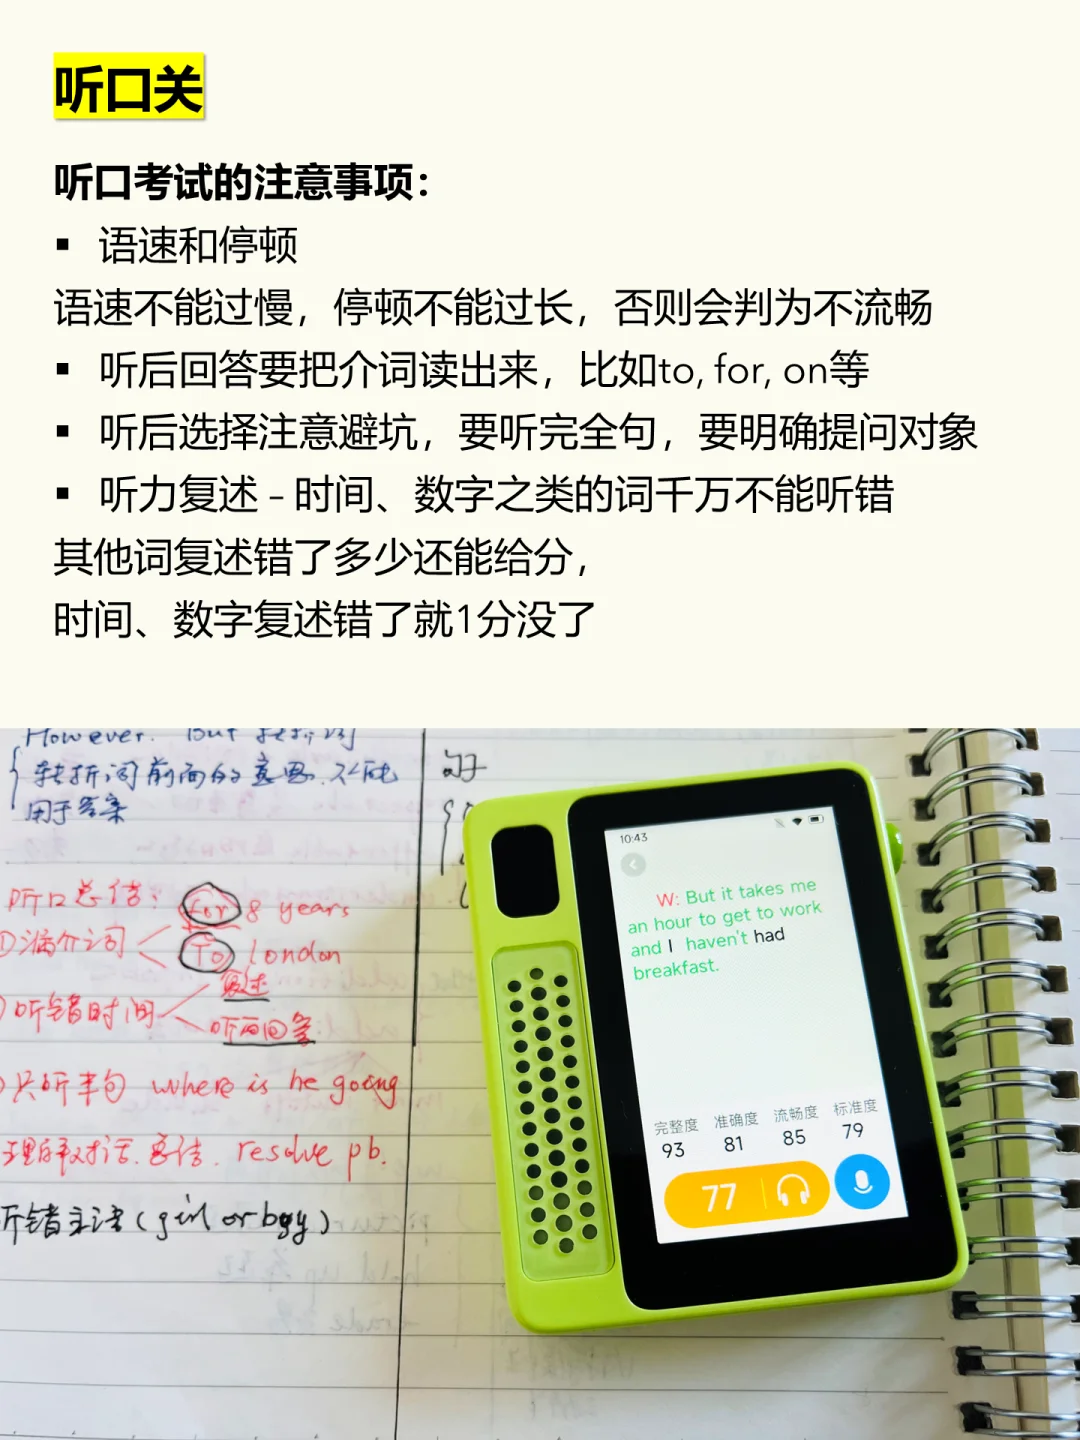 听口关
听口考试的注意事项：
▪ 语速和停顿
语速不能过慢，停顿不能过长，否则会判为不流畅
▪ 听后回答要把介词读出来，比如to, for, on等
▪ 听后选择注意避坑，要听完全句，要明确提问对象
▪ 听力复述 – 时间、数字之类的词千万不能听错
其他词复述错了多少还能给分，
时间、数字复述错了就1分没了
However. But 转折词
转折词前面的意思.不能
用于答案
听口总结：
①漏介词 for 8 years
To london
听错时间 复述
听后回答
只听半句 where is he going
理解对话.总结. resolve pb.
听错主语(girl or boy)
句子
10:43
W: But it takes me
an hour to get to work
and I haven't had
breakfast.
完整度 准确度 流畅度 标准度
93 81 85 79
77